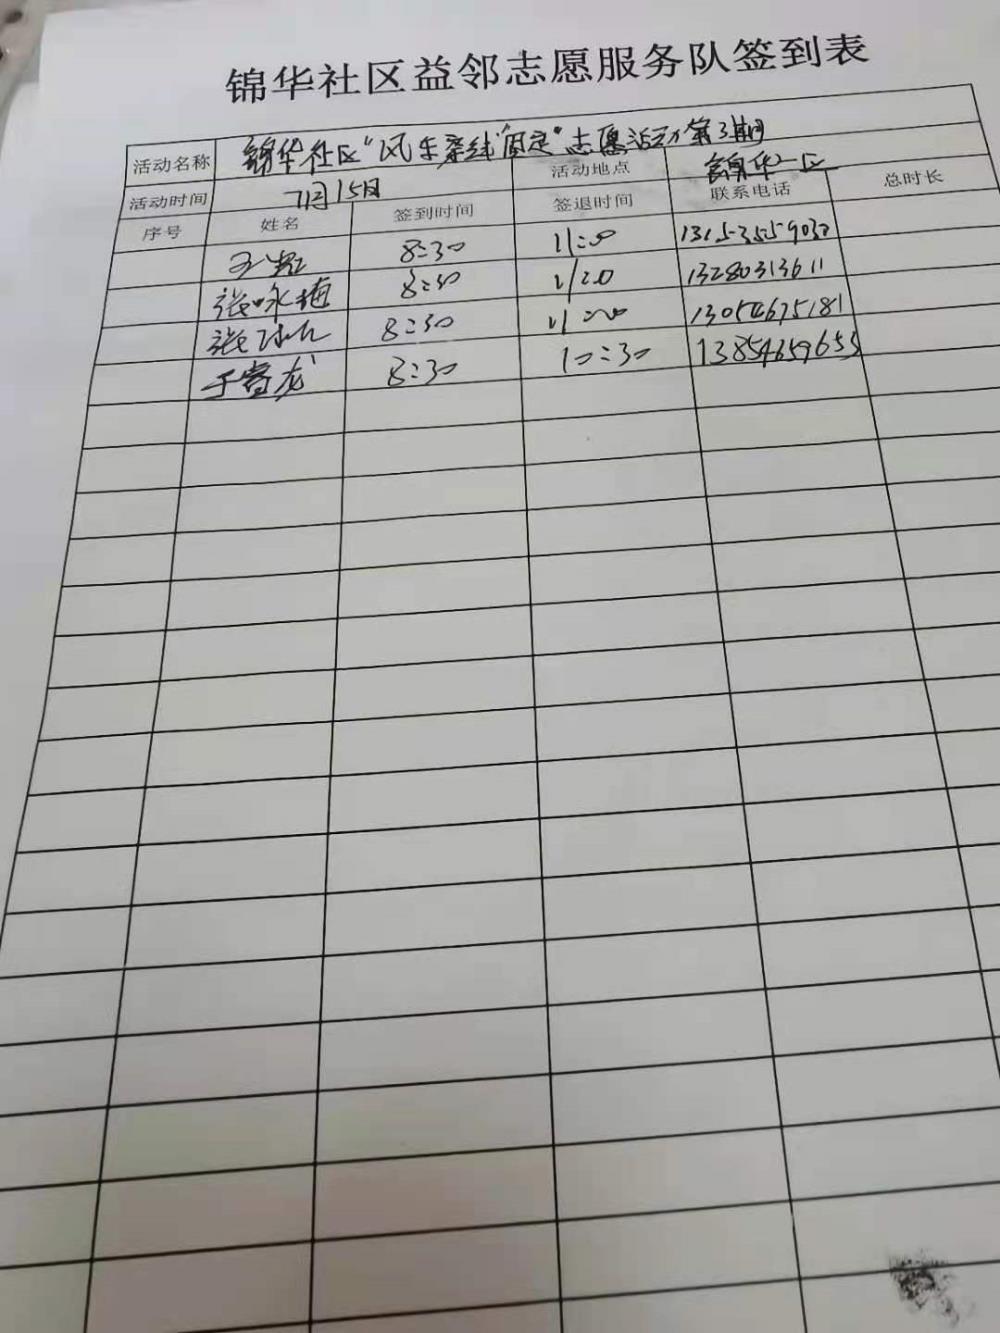 锦华社区益邻志愿服务队签到表
活动名称 锦华社区“风车牵线固定”志愿活动第3期
活动时间 7月15日 活动地点 锦华一区
序号 姓名 签到时间 签退时间 联系电话 总时长
8:30 11:00
张咏梅 8:30 11:00 13280313611
张 8:30 11:00 13054675181
于 龙 8:30 10:30 13854659653